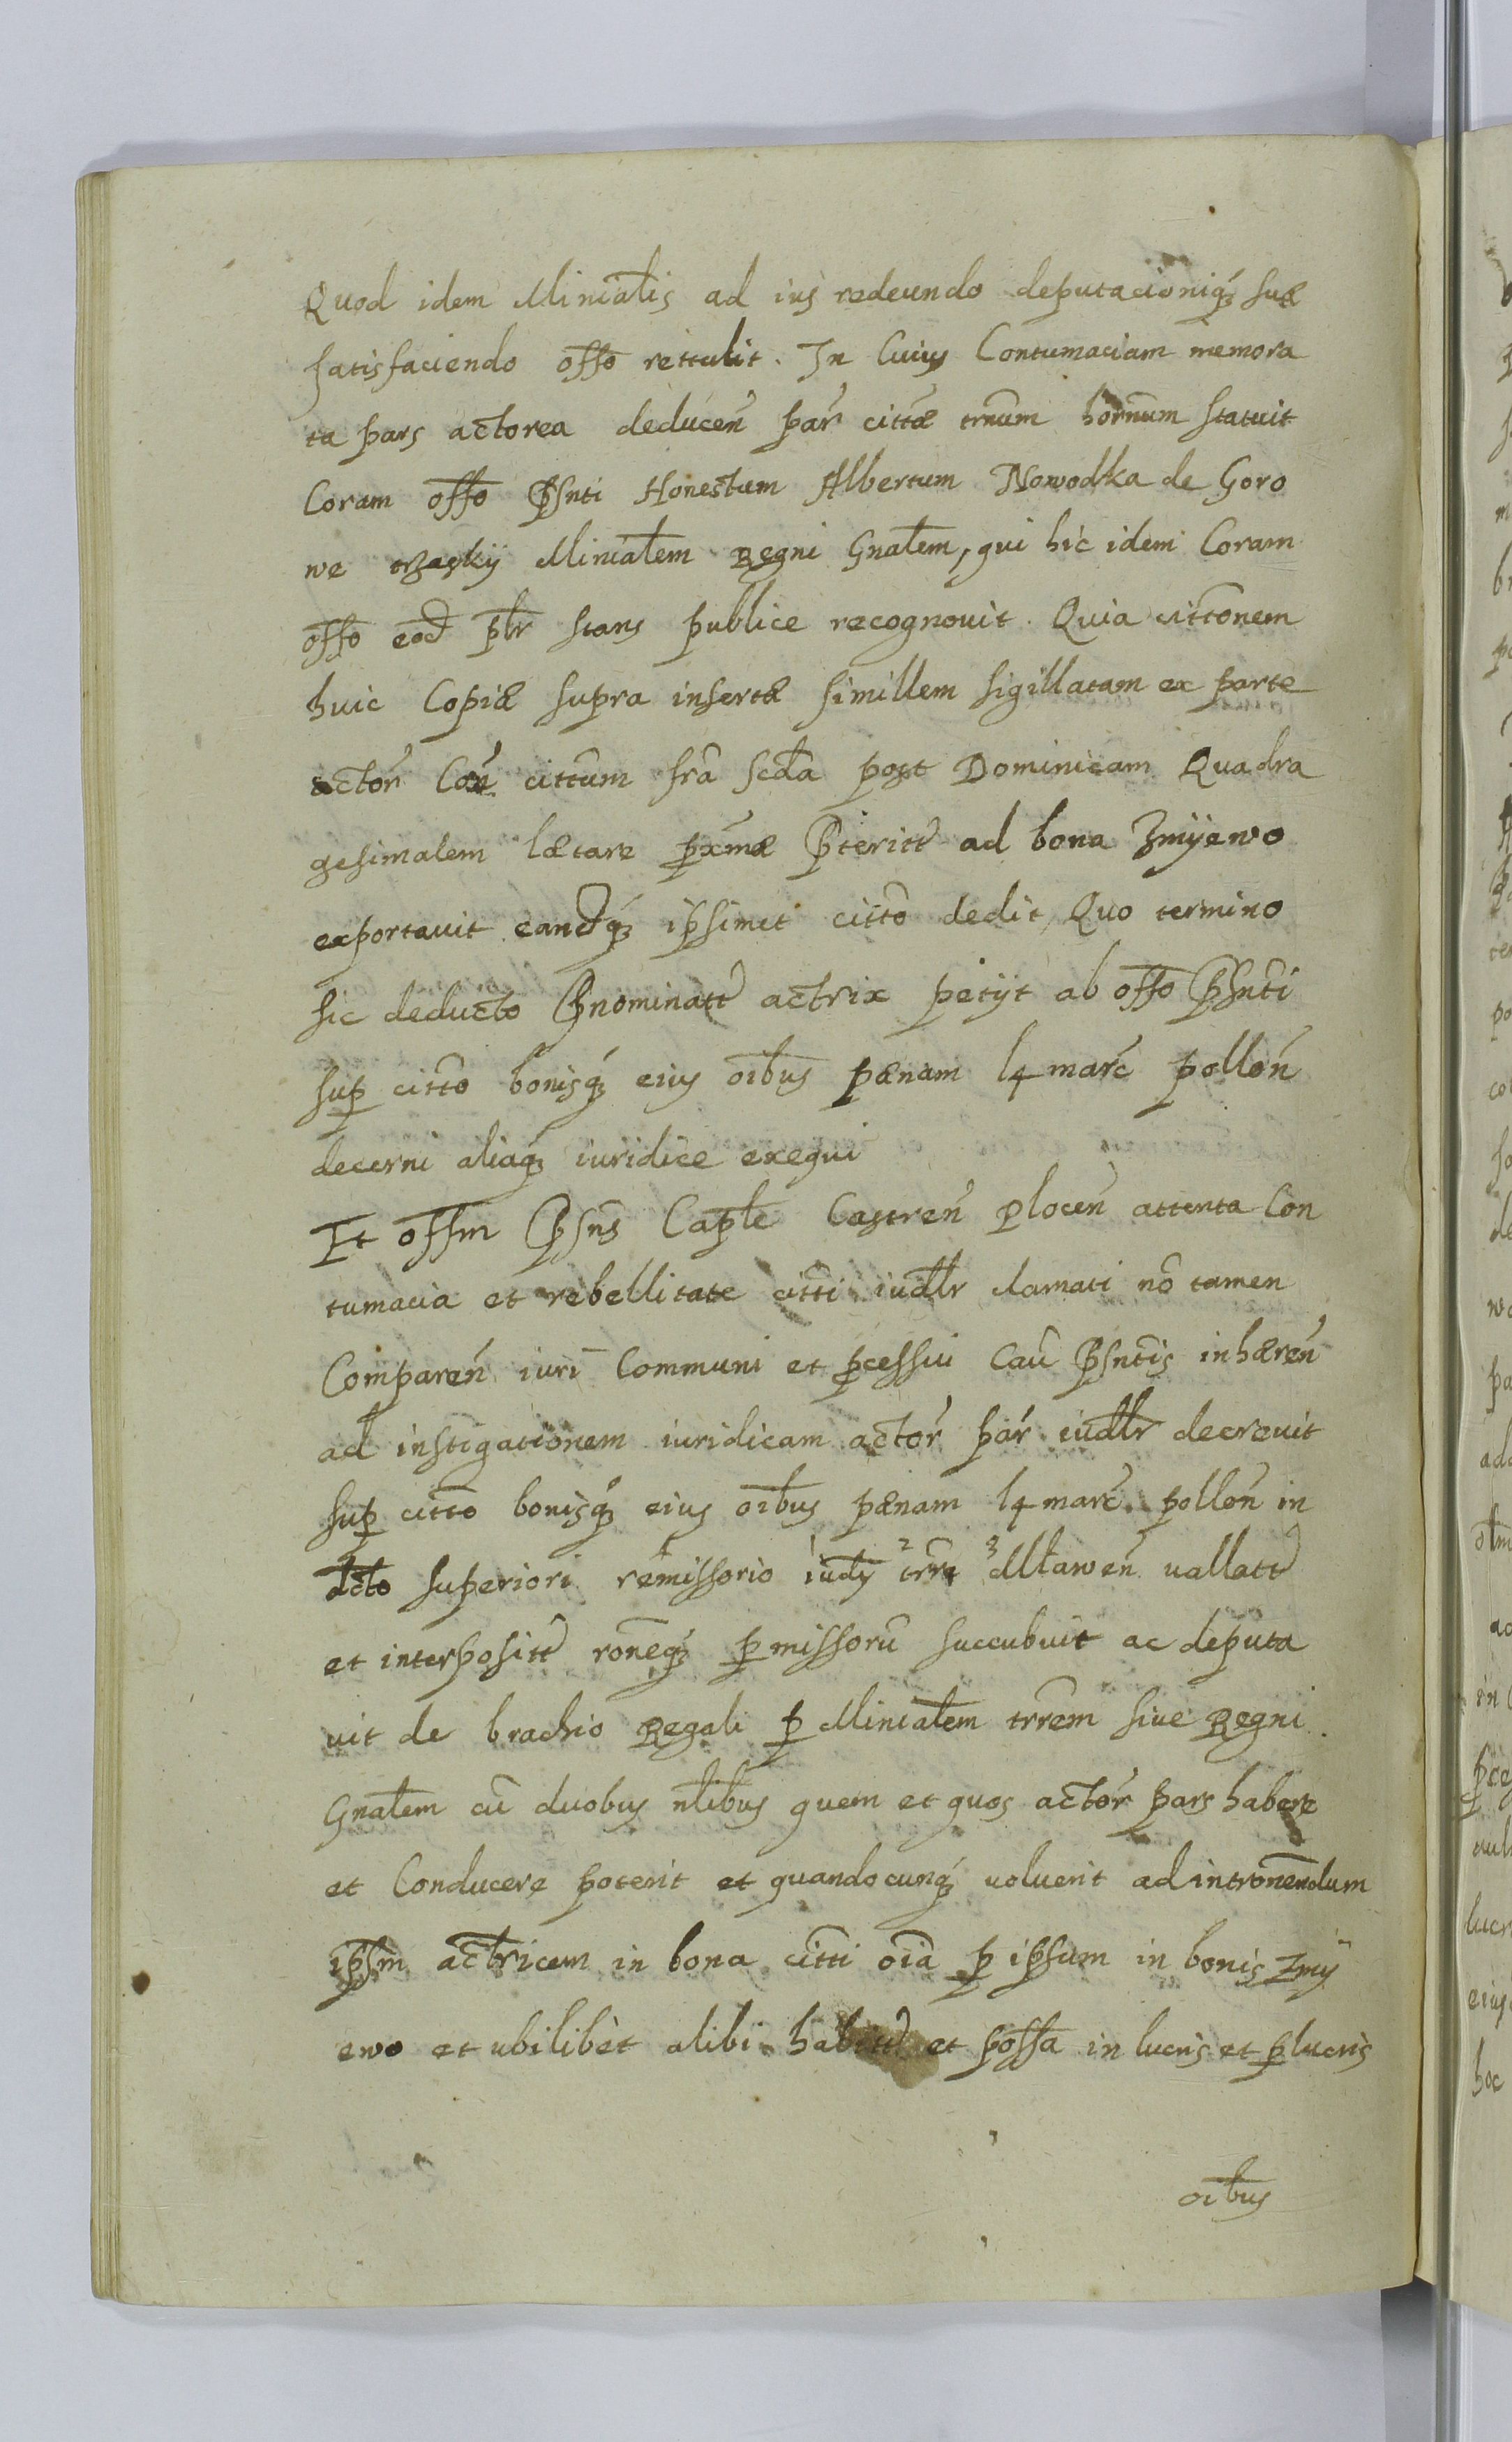 Quod idem Minialis ad ius redeundo deputacioniq₃ suæ
satisfaciendo offo rettulit. In Cuius Contumaciam memora
ta pars actorea deducen par cittæ trnum hornum statuit
Coram offo Pñti Honestum Albertum Nowodka de Goro
we trzaskij Minialem Regni Gnalem, qui hic idem Coram
offo eod plr stans publice recognouit. Quia cittonem
huic Copiæ supra insertæ simillem sigillatam ex parte
actor Con cittum fra scda post Dominicam Quadra
gesimalem lætare pxmæ Pterite ad bona Zmijewo
exportauit eandq₃ ipsimet citto dedit, Quo termino
sic deducto Pnominatt actrix petijt ab offo Psnti
sup citto bonisq₃ eius oibus pænam 14 marc pollon
decerni aliaq₃ iuridice exequi
Et offm Psns Caple Castren Plocen attenta Con
tumacia et rebellitate citti iudlr clamati no tamen
Comparen iuri Communi et pcessui Cau Psntis inhæren
ad instigationem iuridicam actor par iudlr decreuit
sup citto bonisq₃ eius oibus pænam 14 marc pollon in
dcto superiori remissorio iudij trre Mlawen uallatt
et interpositt roneq₃ pmissoru succubuit ac deputa
uit de brachio Regali p Minialem trrem siue Regni
Gnalem cu duobus nlibus quem et quos actor pars habere
et Conducere poterit et quandocunq₃ uoluerit ad intronendum
ipsm actricem in bona citti oia p ipsum in bonis Zmij
ewo et ubilibet alibi habitt et possa in lucris et plucris
oibus